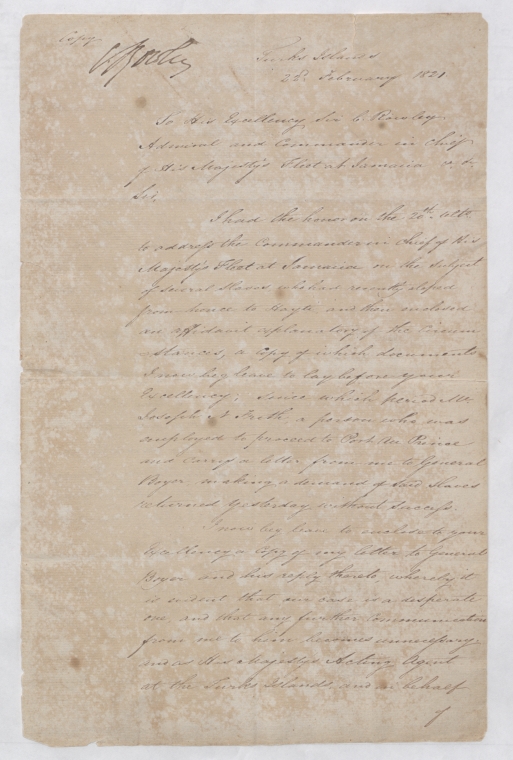 Copy
Turks Islands
22d February 1821
To His Excellency Sir C Rowley
Admiral and Commander in Chief
of His Majesty's Fleet at Jamaica
Sir,
I had the honor on the 20th ulto
to address the Commander in Chief of His
Majesty's Fleet at Jamaica on the subject
of several Slaves who had recently eloped
from hence to Hayti and then enclosed
an affidavit explanatory of the Circum
-stances, a Copy of which documents
I now beg leave to lay before your
Excellency; since which period Mr
Joseph Frith a person who was
employed to proceed to Port au Prince
and carry a letter from me to General
Boyer making a demand of said Slaves
returned Yesterday without success.
I now beg leave to inclose to your
Excellency a Copy of my letter to General
Boyer and his reply thereto, whereby it
is evident that our case is a desperate
one, and that any further communication
from me to him becomes unnecessary
and as His Majesty's Acting Agent
at the Turks Islands and in behalf
of